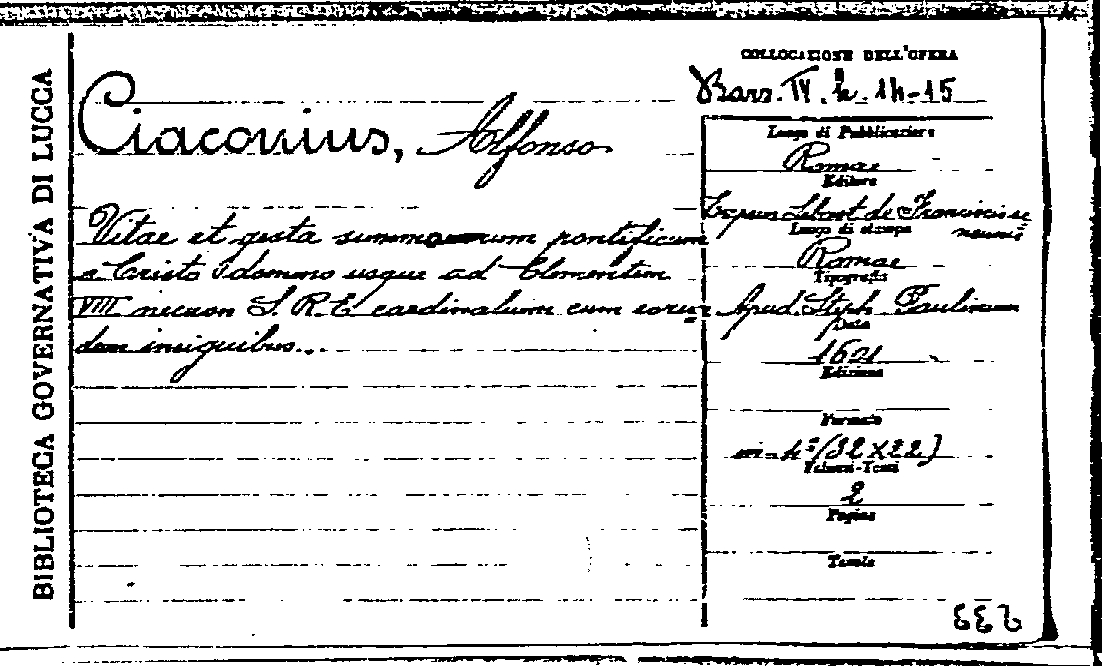 BIBLIOTECA GOVERNATIVA DI LUCCA
Ciaconius, Alfonso
Vitae et gesta summorum pontificum
a Cristo domino usque ad Clementem
VIII necnon S. R. E. cardinalium cum eorun
dem insignibus...
COLLOCAZIONE DELL'OPERA
Bars. IV. h. 14-15
Luogo di Pubblicazione
Romae
Editore
de Franciscis
Luogo di stampa
Romae
Tipografia
Apud Steph Paulinum
Data
1601
Edizione
Formato
in-4° (32x22)
Volumi-Tomi
2
Pagine
Tavole